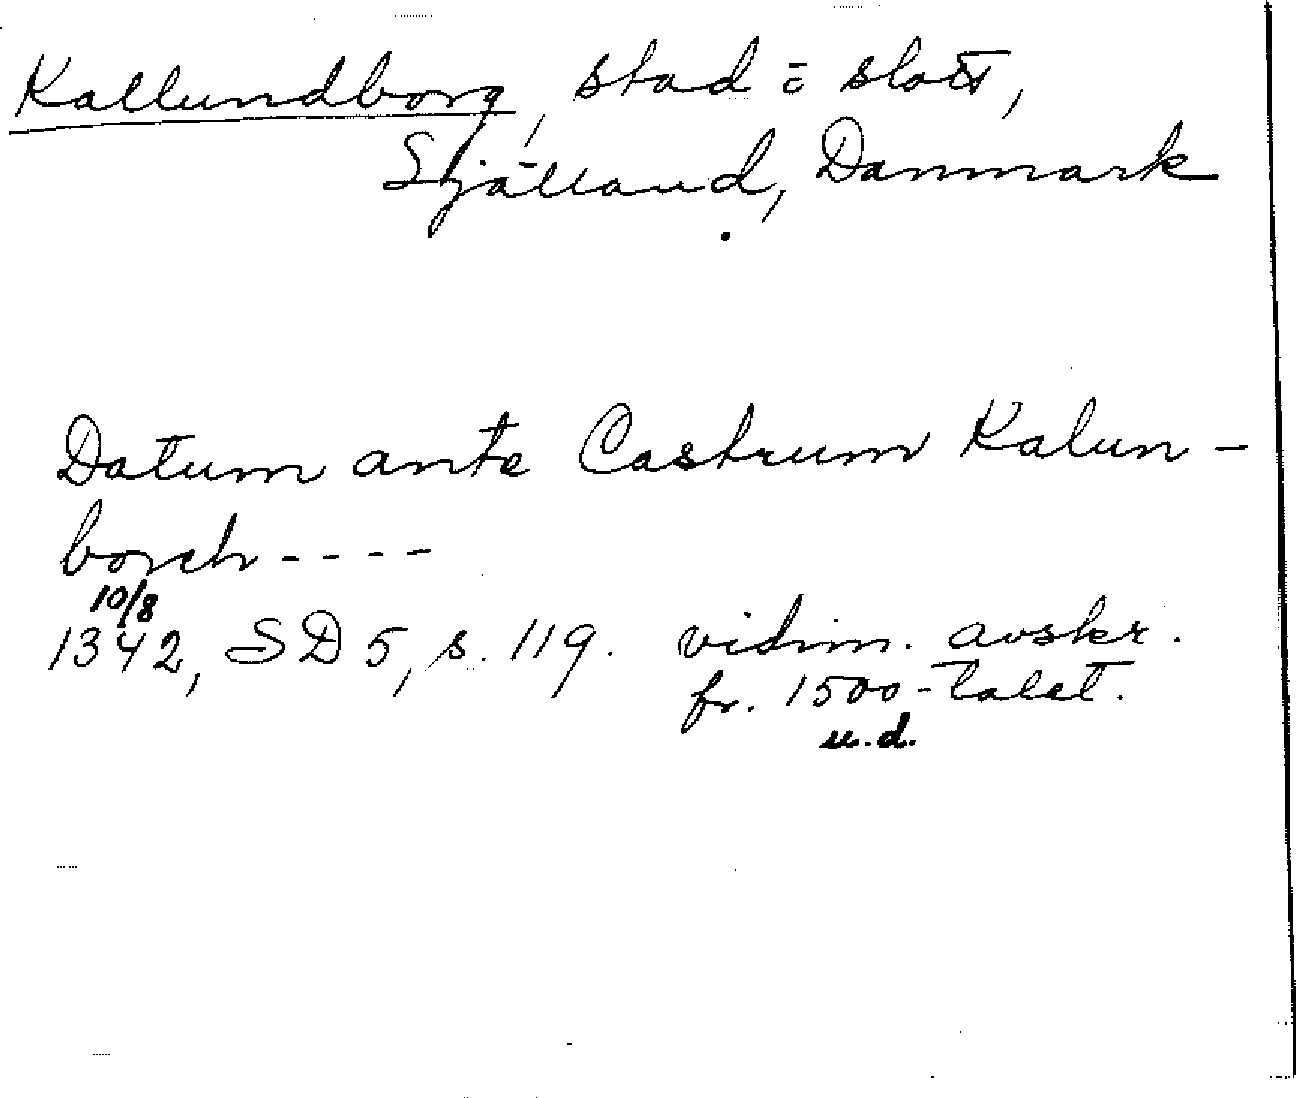 Kallundborg, stad o slott,
Själland, Danmark
Datum ante Castrum Kalun-
borch----
10/8
1342, SD 5, s. 119. vidim. avskr.
fr. 1500-talet.
u.d.